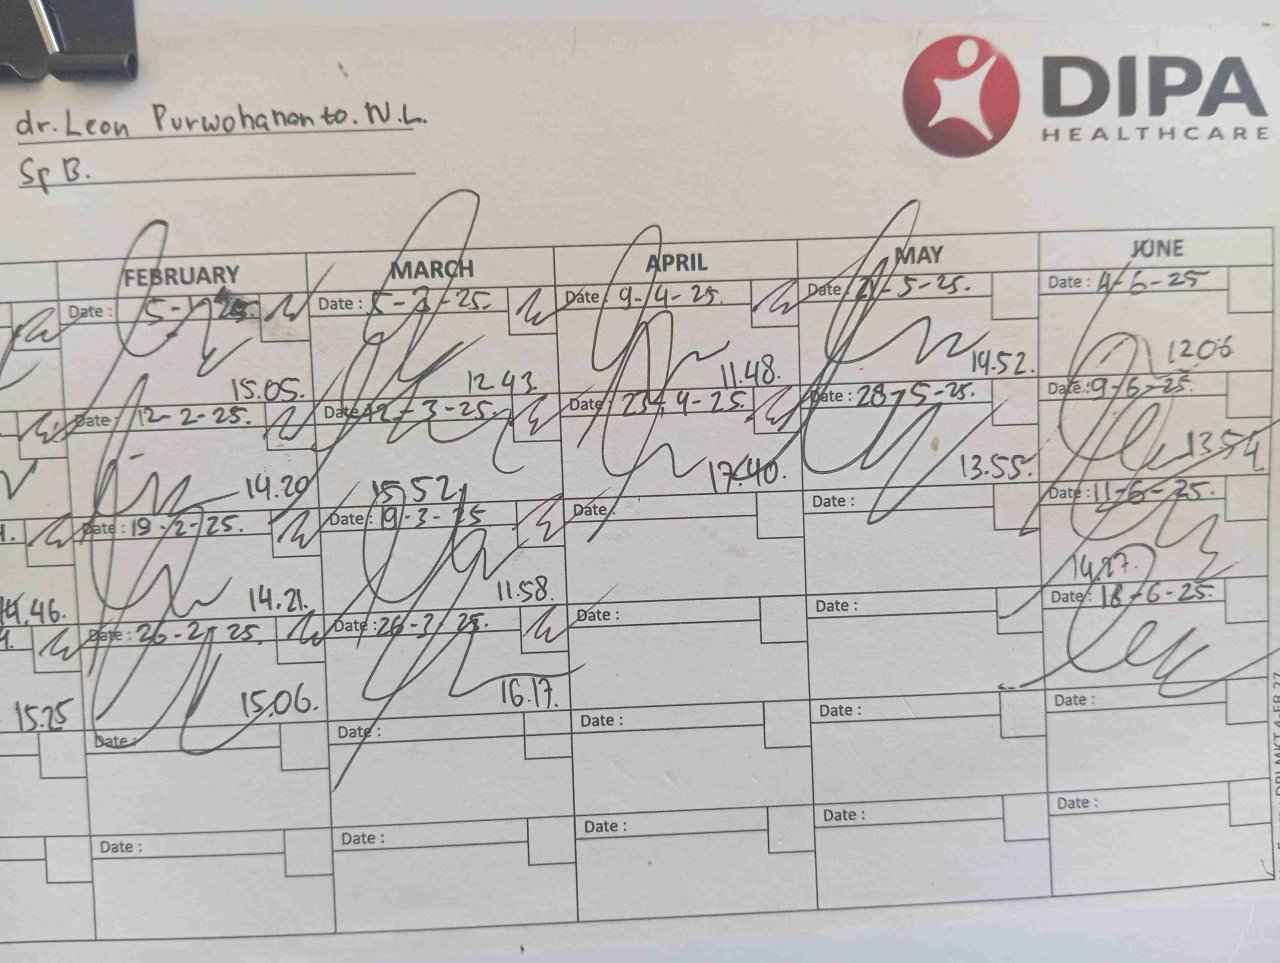 DIPA
HEALTHCARE
dr. Leon Purwohananto. N.L.
Sp B.
FEBRUARY MARCH APRIL MAY JUNE
Date : 5- -25. Date : 5-3-25. Date : 9-4-25. Date : 21-5-25. Date : 4-6-25
15.05. 12.43. 11.48. 14.52. 12.06
Date : 12-2-25. Date : 12-3-25. Date : 23-4-25. Date : 28-5-25. Date : 9-6-25.
14.20 15.52. 17.40. 13.55. 13.54
Date : 19-2-25. Date : 19-3-25 Date : Date : Date : 11-6-25.
14.46. 14.21. 11.58. 14.27.
Date : 26-2-25. Date : 26-3-25. Date : Date : Date : 18-6-25.
15.25 15.06. 16.17.
Date : Date : Date : Date : Date :
Date : Date : Date : Date : Date :